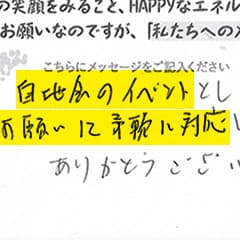 の笑顔をみること、HAPPYなエネル
お願いなのですが、「私たちへのメ
こちらにメッセージをご記入ください
自地会のイベントとし
お願いに柔軟に対応
ありがとうござい